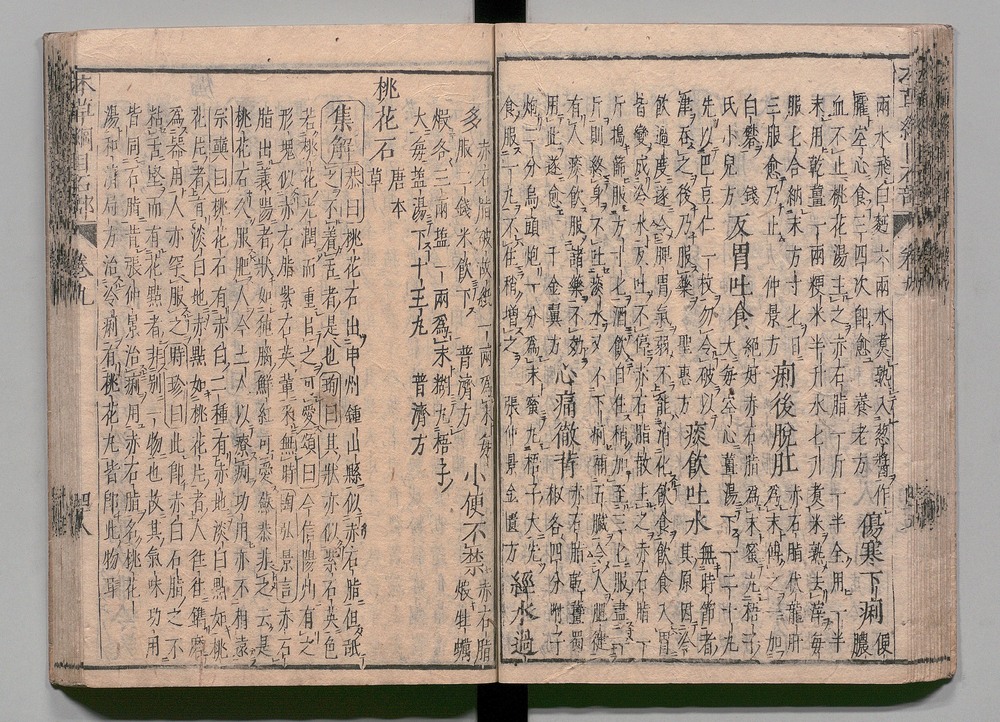 兩水飛白麪六兩水煑熟入葱醬作
臛空心食三四次卽愈 養老方 傷寒下痢 便膿
血不止桃花湯主之赤石脂一斤一半全用一半
末用乾薑一兩粳米半升水七升煑米熟去滓每
服七合納末方寸匕日三服愈乃止
仲景方 痢後脫肛 赤石脂伏龍肝
爲末傅之一加白礬 錢氏小兒方
反胃吐食 絕好赤石脂爲末蜜丸梧子大每空心薑湯下一二十丸
先以巴豆仁一枚勿令破以津吞之後乃服藥 聖惠方 痰飲吐水 無時節者其原因冷
飲過度遂令脾胃氣弱不能消化飲食飲食入胃
皆變成冷水反吐不停赤石脂散主之赤石脂一
斤搗篩服方寸匕酒飲自任稍加至三匕服盡一
斤則終身不吐痰水又不下痢補五臟令人肥健
有人痰飲服諸藥不效用此遂愈 千金翼方
心痛徹背 赤石脂乾薑蜀椒各四分附子
炮二分烏頭炮一分爲末蜜丸梧子大先
食服一丸不知稍增之 張仲景金匱方 經水過
多 赤石脂破故紙一兩爲末每服二錢米飲下 普濟方 小便不禁 赤石脂煅牡蠣
煅各三兩鹽一兩爲末糊丸梧子
大每鹽湯下十五丸 普濟方
桃花石 唐本草
集解 恭曰桃花石出申州鍾山縣似赤石脂但舐
之不着舌者是也珣曰其狀亦似紫石英色
若桃花光潤而重目之可愛頌曰今信陽州有之
形塊似赤石脂紫石英輩采無時陶弘景言赤石
脂出義陽者狀如㹠腦鮮紅可愛蘇恭非之云是
桃花石久服肥人今土人以療痢功用亦不相遠
宗奭曰桃花石有赤白二種有赤地淡白點如桃
花片者有淡白地赤點如桃花片者人往往鐫磨
爲器用人亦罕服之時珍曰此卽赤白石脂之不
粘舌堅而有花點者非別一物也故其氣味功用
皆同石脂昔張仲景治痢用赤石脂名桃花
湯和濟局方治冷痢有桃花丸皆卽此物耳
本草綱目石部 卷九
四八